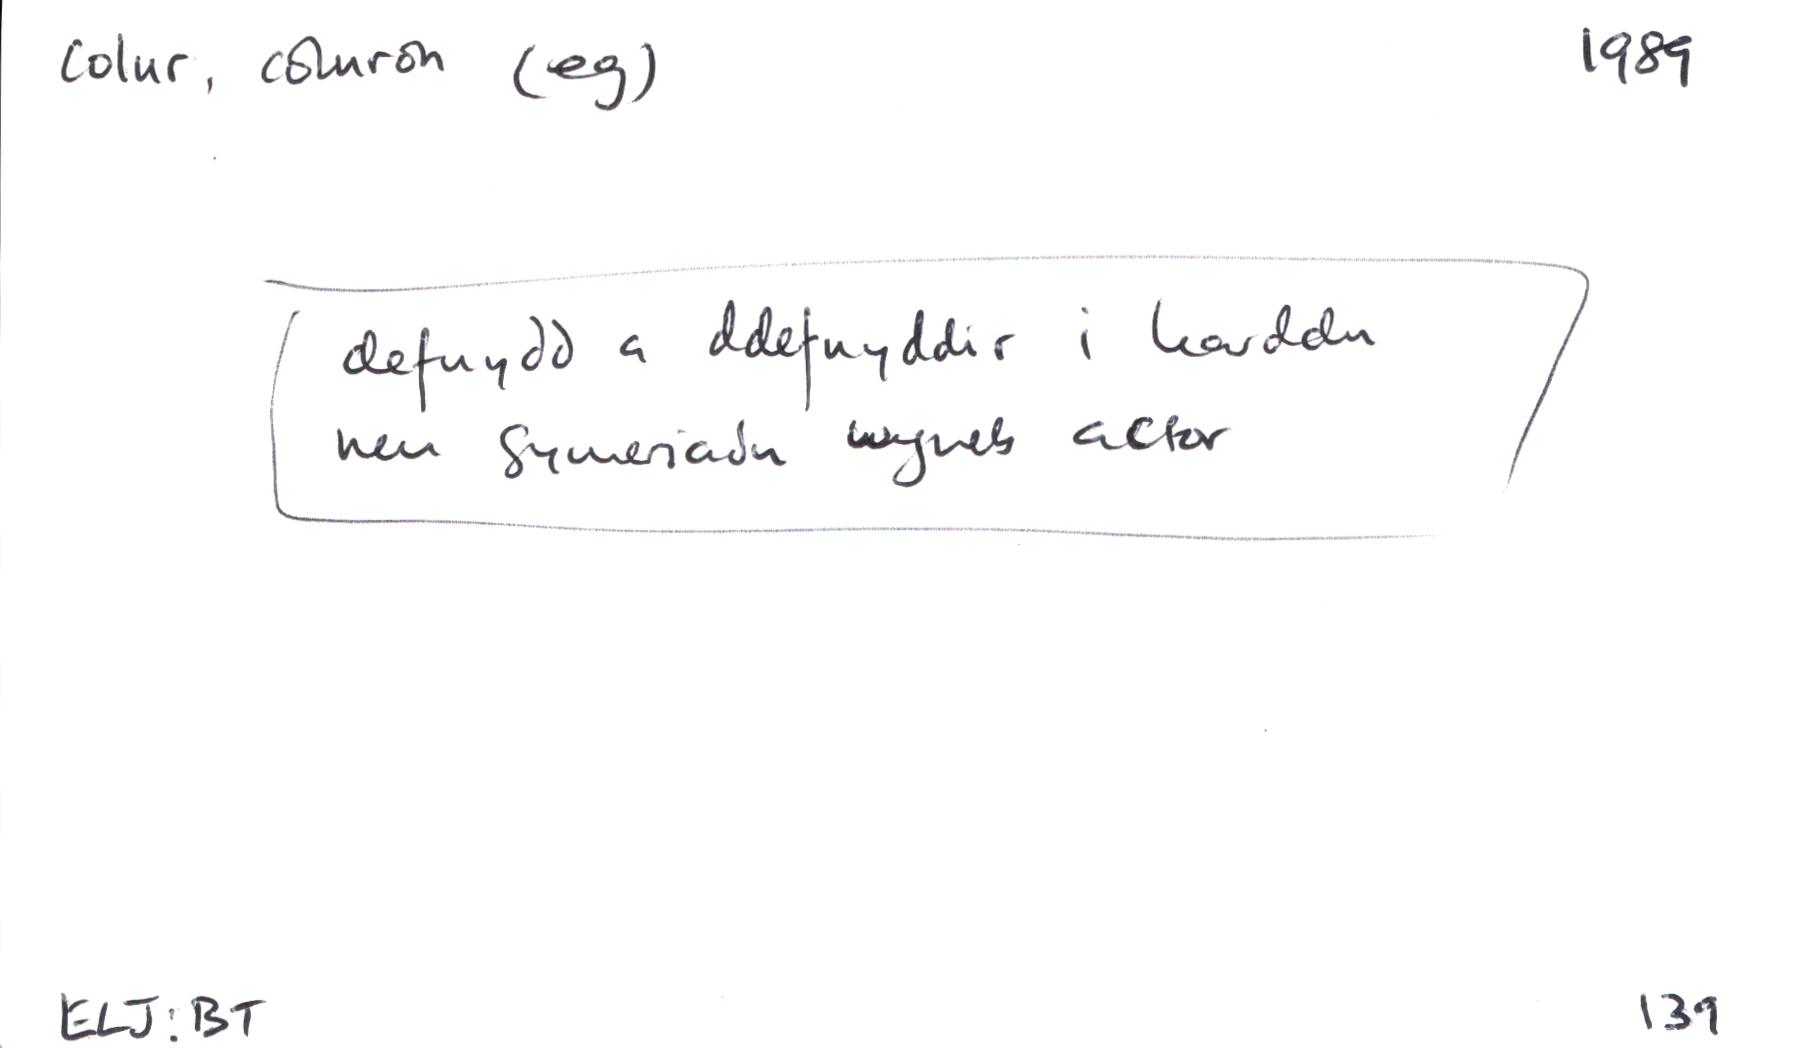 Colur, coluron (eg) 1989
defnydd a ddefnyddir i harddu
neu gymeriadu wyneb actor
ELJ:BT 139